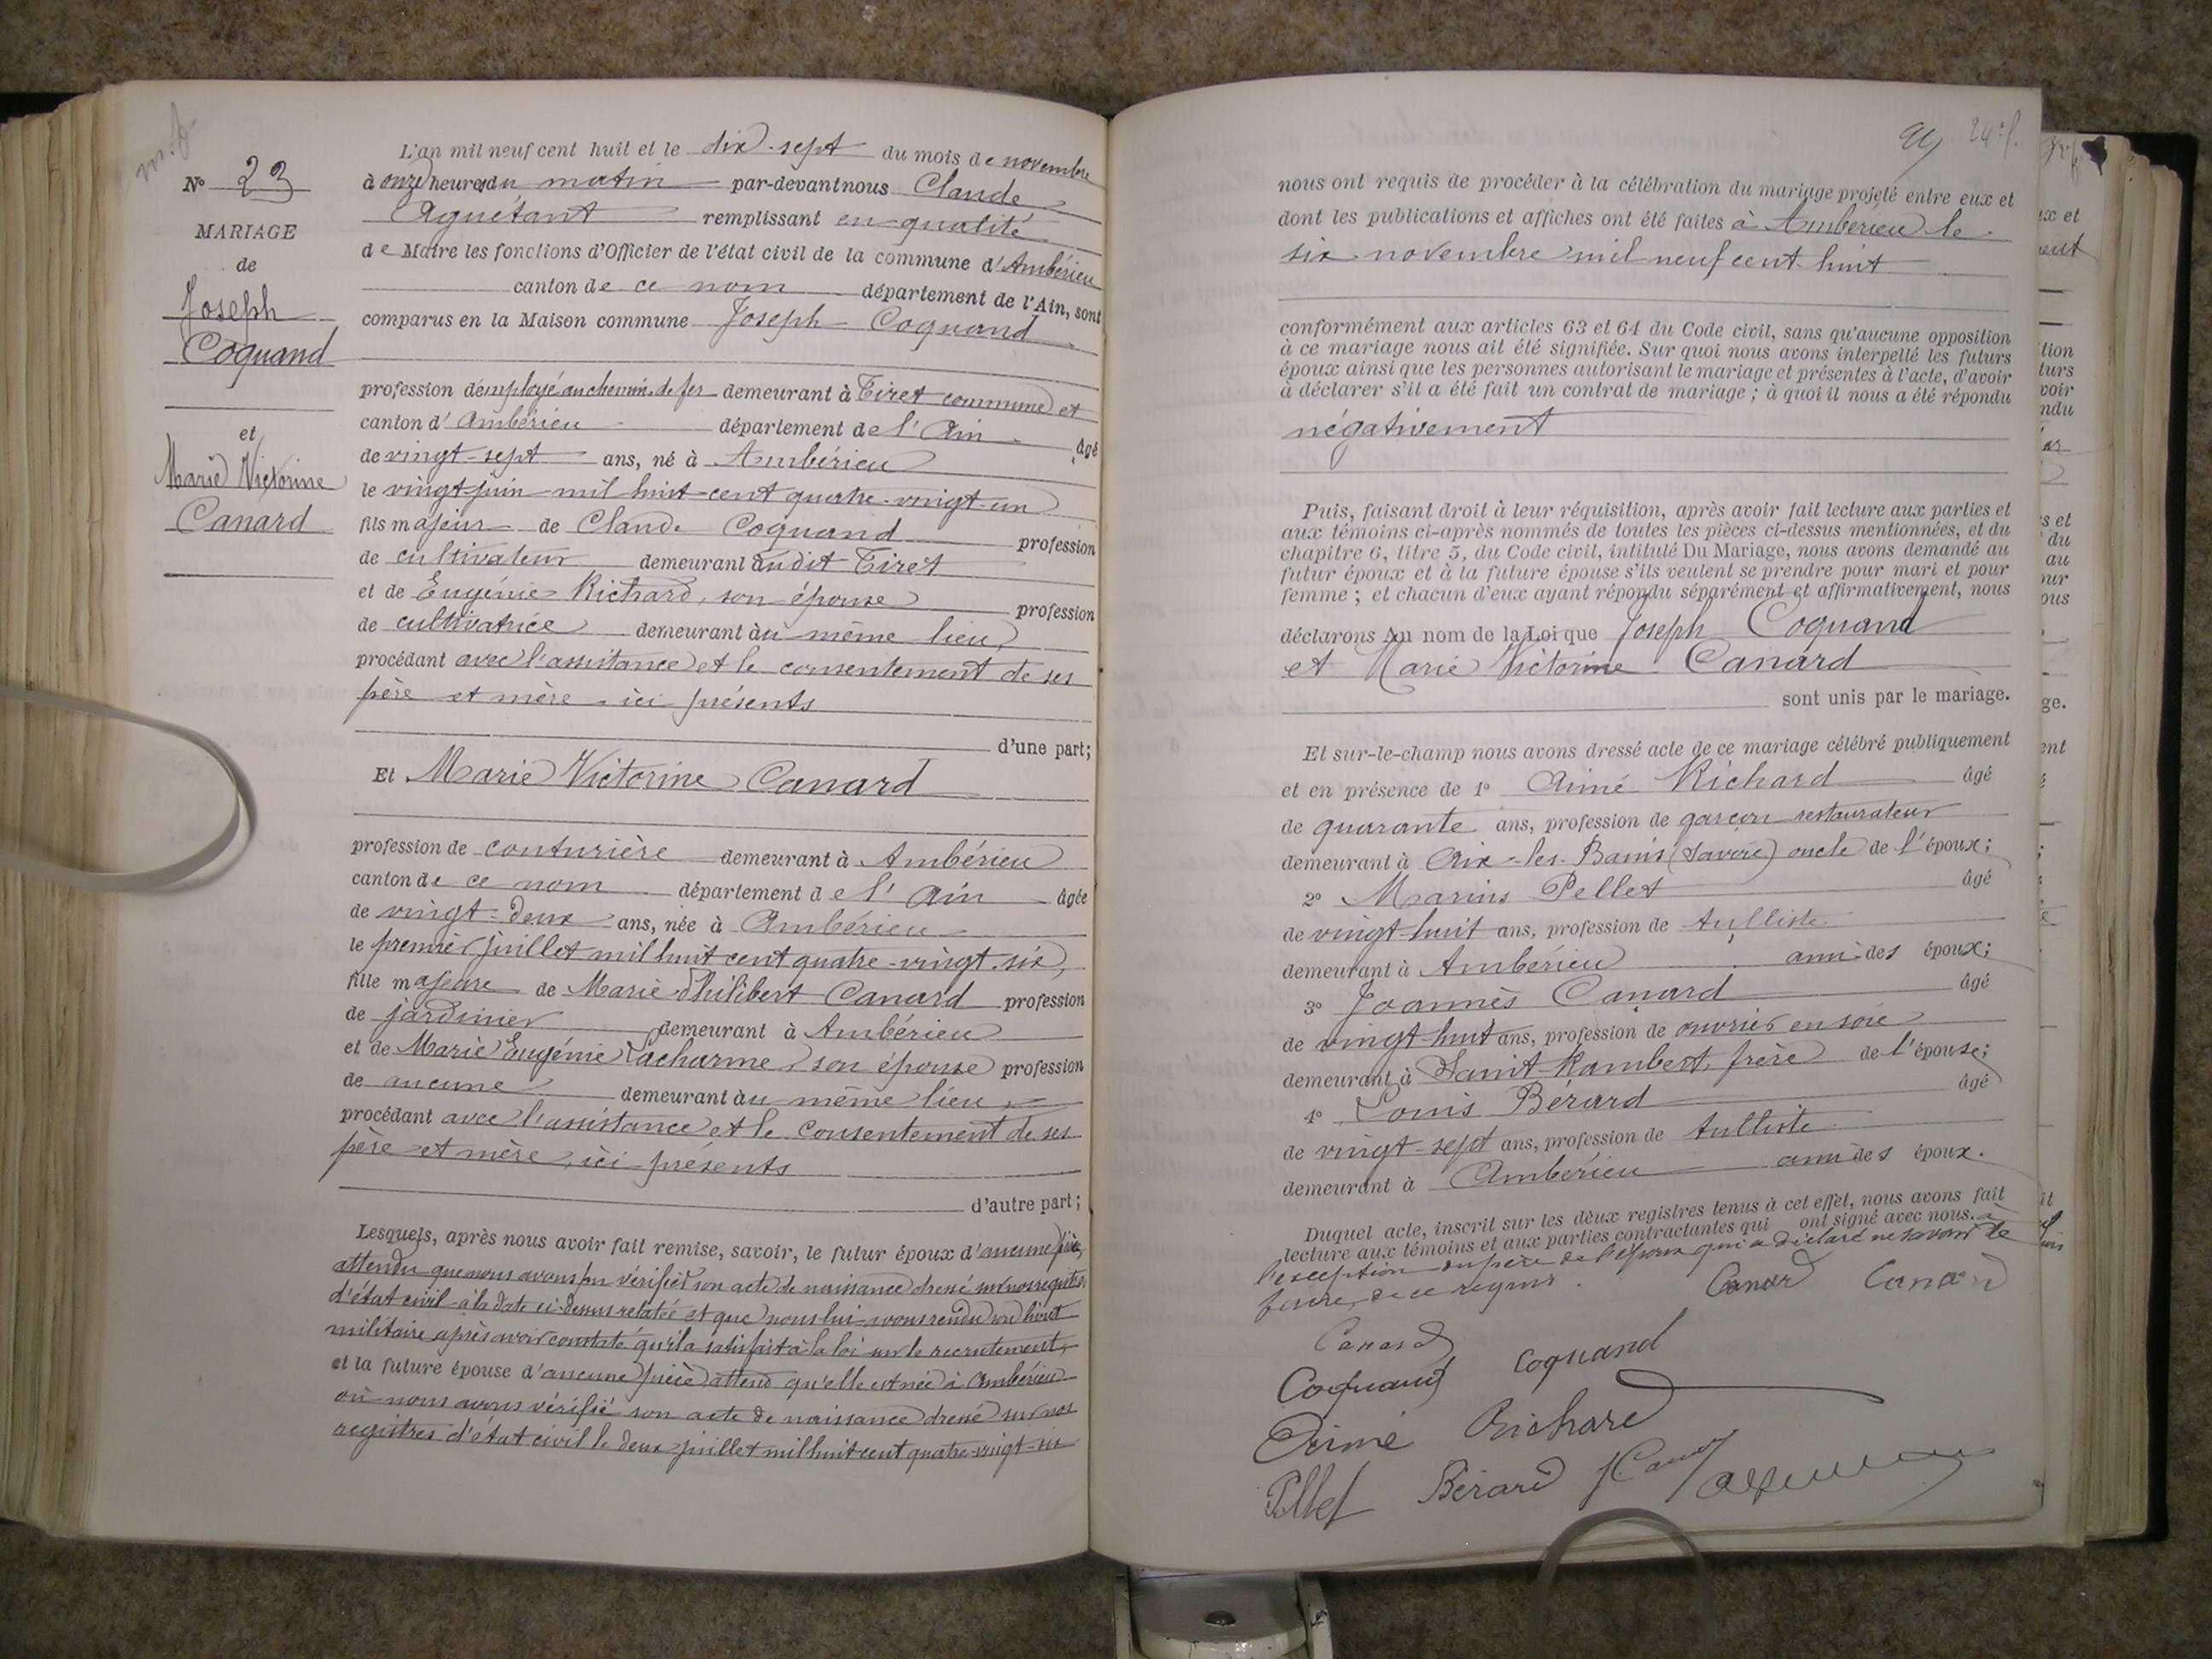 N° 23
MARIAGE
de
Joseph
Coquand
et
Marie Victorine
Canard
L'an mil neuf cent huit et le dix-sept du mois de novembre
à onze heures du matin par-devant nous Claude
Aguétant remplissant en qualité
de Maire les fonctions d'Officier de l'état civil de la commune d'Ambérieu
canton de ce nom département de l'Ain, sont
comparus en la Maison commune Joseph Coquand
profession d'employé au chemin de fer demeurant à Tiret commune et
canton d'Ambérieu département de l'Ain âgé
de vingt-sept ans, né à Ambérieu
le vingt juin mil huit cent quatre-vingt-un
fils majeur de Claude Coquand profession
de cultivateur demeurant audit Tiret
et de Eugénie Richard, son épouse profession
de cultivatrice demeurant au même lieu,
procédant avec l'assistance et le consentement de ses
père et mère, ici présents
d'une part;
Et Marie Victorine Canard
profession de couturière demeurant à Ambérieu
canton de ce nom département de l'Ain âgée
de vingt-deux ans, née à Ambérieu
le premier juillet mil huit cent quatre-vingt-six,
fille majeure de Marie Philibert Canard profession
de jardinier demeurant à Ambérieu
et de Marie Eugénie Lacharme, son épouse profession
de aucune demeurant au même lieu,
procédant avec l'assistance et le consentement de ses
père et mère, ici présents
d'autre part;
Lesquels, après nous avoir fait remise, savoir, le futur époux d'aucune pièce,
attendu que nous avons pu vérifier son acte de naissance dressé sur nos registres
d'état civil à la date ci-dessus relatée et que nous lui avons rendu son livret
militaire après avoir constaté qu'il a satisfait à la loi sur le recrutement,
et la future épouse d'aucune pièce attendu qu'elle est née à Ambérieu
où nous avons vérifié son acte de naissance dressé sur nos
registres d'état civil le deux juillet mil huit cent quatre-vingt-six
24 f.
nous ont requis de procéder à la célébration du mariage projeté entre eux et
dont les publications et affiches ont été faites à Ambérieu le
six novembre mil neuf cent huit
conformément aux articles 63 et 64 du Code civil, sans qu'aucune opposition
à ce mariage nous ait été signifiée. Sur quoi nous avons interpellé les futurs
époux ainsi que les personnes autorisant le mariage et présentes à l'acte, d'avoir
à déclarer s'il a été fait un contrat de mariage; à quoi il nous a été répondu
négativement
Puis, faisant droit à leur réquisition, après avoir fait lecture aux parties et
aux témoins ci-après nommés de toutes les pièces ci-dessus mentionnées, et du
chapitre 6, titre 5, du Code civil, intitulé Du Mariage, nous avons demandé au
futur époux et à la future épouse s'ils veulent se prendre pour mari et pour
femme; et chacun d'eux ayant répondu séparément et affirmativement, nous
déclarons Au nom de la Loi que Joseph Coquand
et Marie Victorine Canard
sont unis par le mariage.
Et sur-le-champ nous avons dressé acte de ce mariage célébré publiquement
et en présence de 1° Aimé Richard âgé
de quarante ans, profession de garçon restaurateur
demeurant à Aix-les-Bains (Savoie) oncle de l'époux;
2° Marius Pellet âgé
de vingt-huit ans, profession de tulliste
demeurant à Ambérieu ami des époux;
3° Joannès Canard âgé
de vingt-huit ans, profession de ouvrier en soie
demeurant à Saint-Rambert, frère de l'épouse;
4° Louis Bérard âgé
de vingt-sept ans, profession de tulliste
demeurant à Ambérieu ami des époux.
Duquel acte, inscrit sur les deux registres tenus à cet effet, nous avons fait
lecture aux témoins et aux parties contractantes qui ont signé avec nous. à
l'exception du père de l'époux qui a déclaré ne savoir le
faire, de ce requis.
Canard Canard
Canard
Coquand Coquand
Aimé Richard
Pellet Bérard